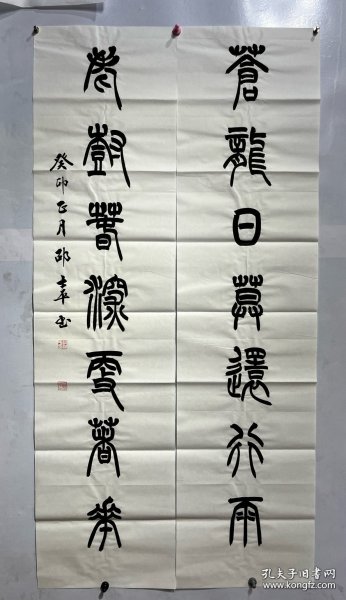 蒼龍日莫還行雨
老樹春深更著花
癸卯正月邵
孔夫子旧书网
www.kongfz.com